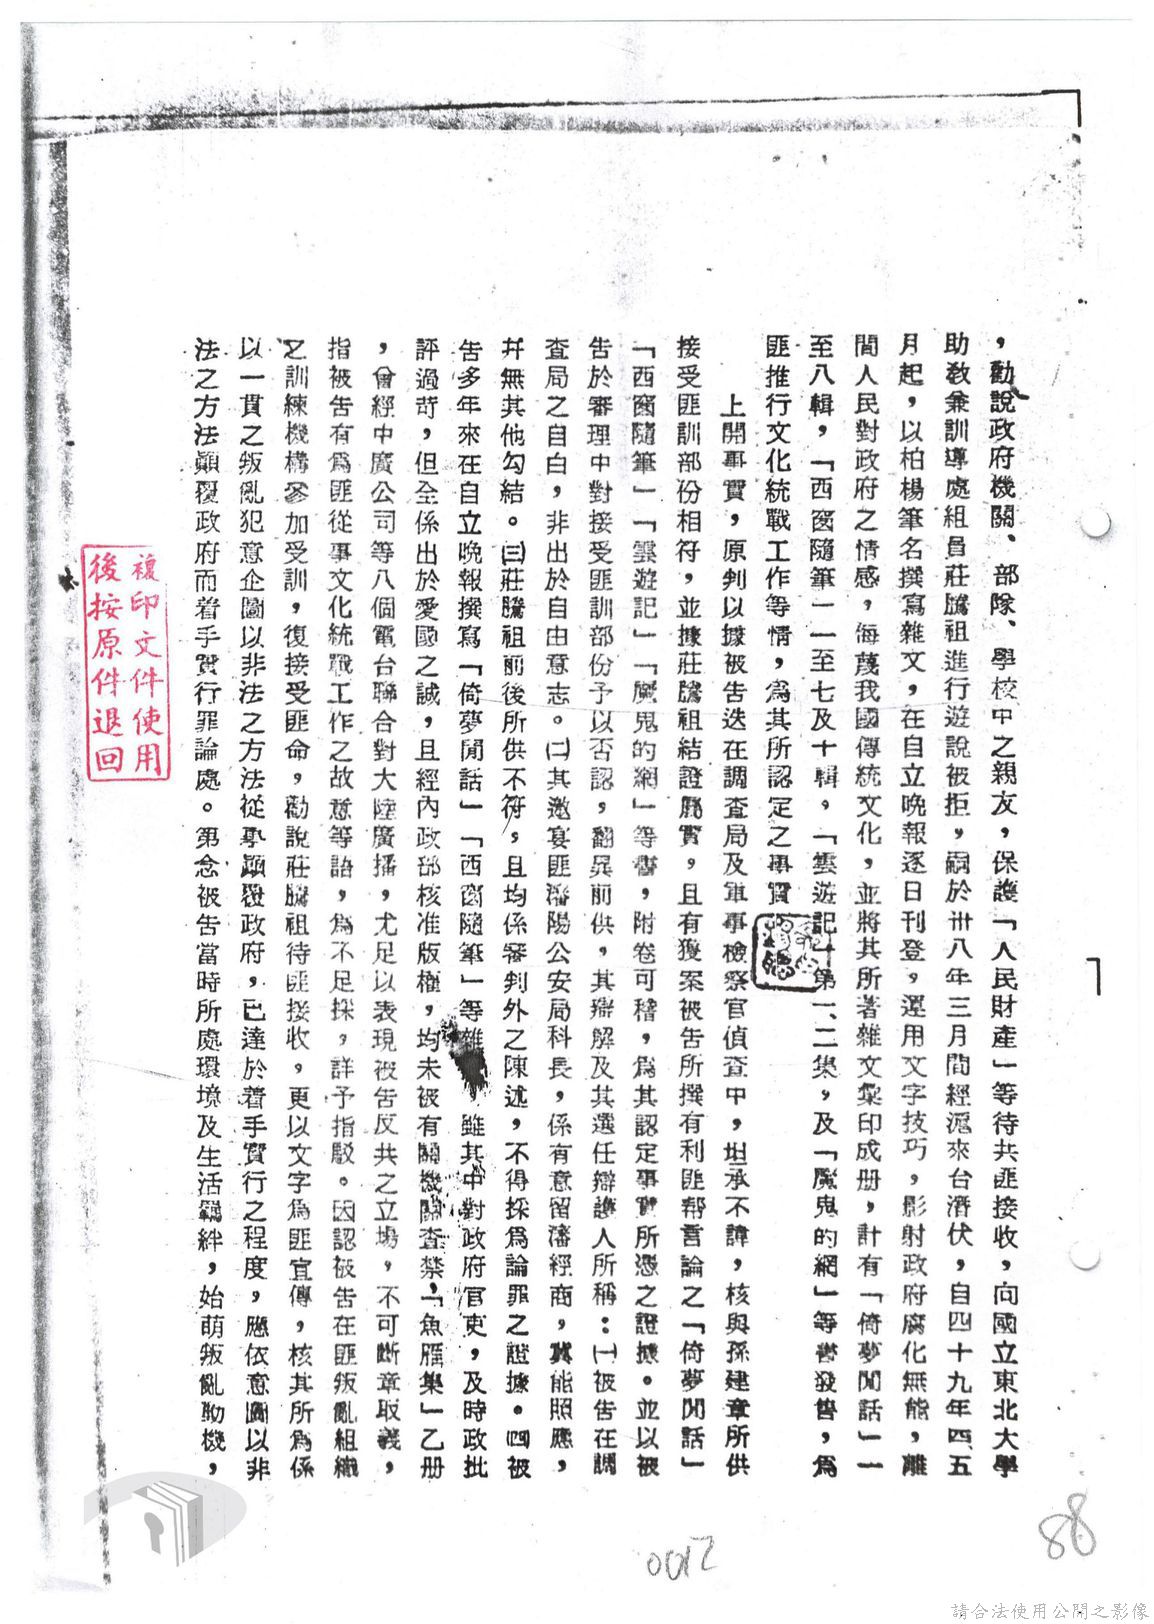 ，勸說政府機關、部隊、學校中之親友，保護「人民財產」等待共匪接收，向國立東北大學
助教兼訓導處組員莊騰祖進行遊說被拒，嗣於卅八年三月間經滬來台潛伏，自四十九年四、五
月起，以柏楊筆名撰寫雜文，在自立晚報逐日刊登，運用文字技巧，影射政府腐化無能，離
間人民對政府之情感，侮蔑我國傳統文化，並將其所著雜文彙印成册，計有「倚夢閒話」一
至八輯，「西窗隨筆」一至七及十輯，「雲遊記」第一、二集，及「魔鬼的網」等書發售，為
匪推行文化統戰工作等情，為其所認定之事實。
上開事實，原判以據被告迭在調查局及軍事檢察官偵查中，坦承不諱，核與孫建章所供
接受匪訓部份相符，並據莊騰祖結證屬實，且有獲案被告所撰有利匪帮言論之「倚夢閒話」
「西窗隨筆」「雲遊記」「魔鬼的網」等書，附卷可稽，為其認定事實所憑之證據。並以被
告於審理中對接受匪訓部份予以否認，翻異前供，其辯解及其選任辯護人所稱：㈠被告在調
查局之自白，非出於自由意志。㈡其邀宴匪瀋陽公安局科長，係有意留瀋經商，冀能照應，
幷無其他勾結。㈢莊騰祖前後所供不符，且均係審判外之陳述，不得採為論罪之證據。㈣被
告多年來在自立晚報撰寫「倚夢閒話」「西窗隨筆」等雜，雖其中對政府官吏，及時政批
評過苛，但全係出於愛國之誠，且經內政部核准版權，均未被有關機關查禁，「魚雁集」乙册
，曾經中廣公司等八個電台聯合對大陸廣播，尤足以表現被告反共之立場，不可斷章取義，
指被告有為匪從事文化統戰工作之故意等語，為不足採，詳予指駁。因認被告在匪叛亂組織
之訓練機構參加受訓，復接受匪命，勸說莊騰祖待匪接收，更以文字為匪宣傳，核其所為係
以一貫之叛亂犯意企圖以非法之方法從事顛覆政府，已達於着手實行之程度，應依意圖以非
法之方法顛覆政府而着手實行罪論處。第念被告當時所處環境及生活羈絆，始萌叛亂動機，
複印文件使用
後按原件退回
0012
88
請合法使用公開之影像